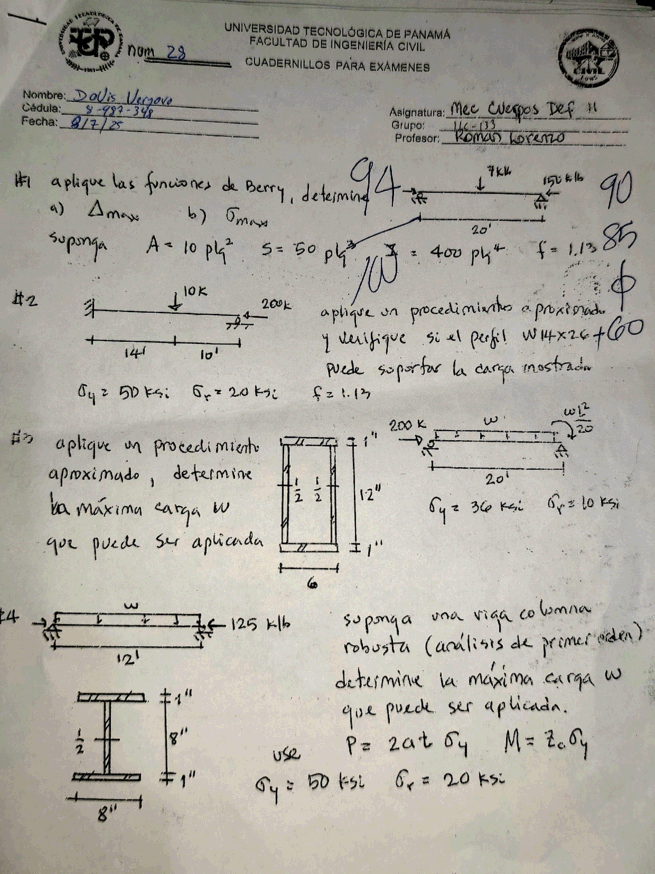 UNIVERSIDAD TECNOLÓGICA DE PANAMÁ
FACULTAD DE INGENIERÍA CIVIL
CUADERNILLOS PARA EXÁMENES
num 28
Nombre: Davis Vergara
Cédula: 8-997-348
Fecha: 8/7/25
Asignatura: Mec Cuerpos Def II
Grupo: 1IC-133
Profesor: Román Lorenzo
#1 aplique las funciones de Berry, determine
a) Δmax b) σmax
suponga A = 10 plg² S = 50 plg³ I = 400 plg⁴ f = 1.13
7klb
150 klb
20'
94
90
85
100
φ
+60
#2
10K
200K
14' 10'
σy = 50 ksi σr = 20 ksi f = 1.13
aplique un procedimiento aproximado
y verifique si el perfil W14x26
puede soportar la carga mostrada
#3 aplique un procedimiento
aproximado, determine
la máxima carga W
que puede ser aplicada
1"
1/2 1/2
12"
1"
6
200 K
W
WL²/20
20'
σy = 36 ksi σr = 10 ksi
#4
W
125 klb
12'
1"
1/2
8"
1"
8"
suponga una viga columna
robusta (análisis de primer orden)
determine la máxima carga W
que puede ser aplicada.
use
P = 2at σy M = Zc σy
σy = 50 ksi σr = 20 ksi